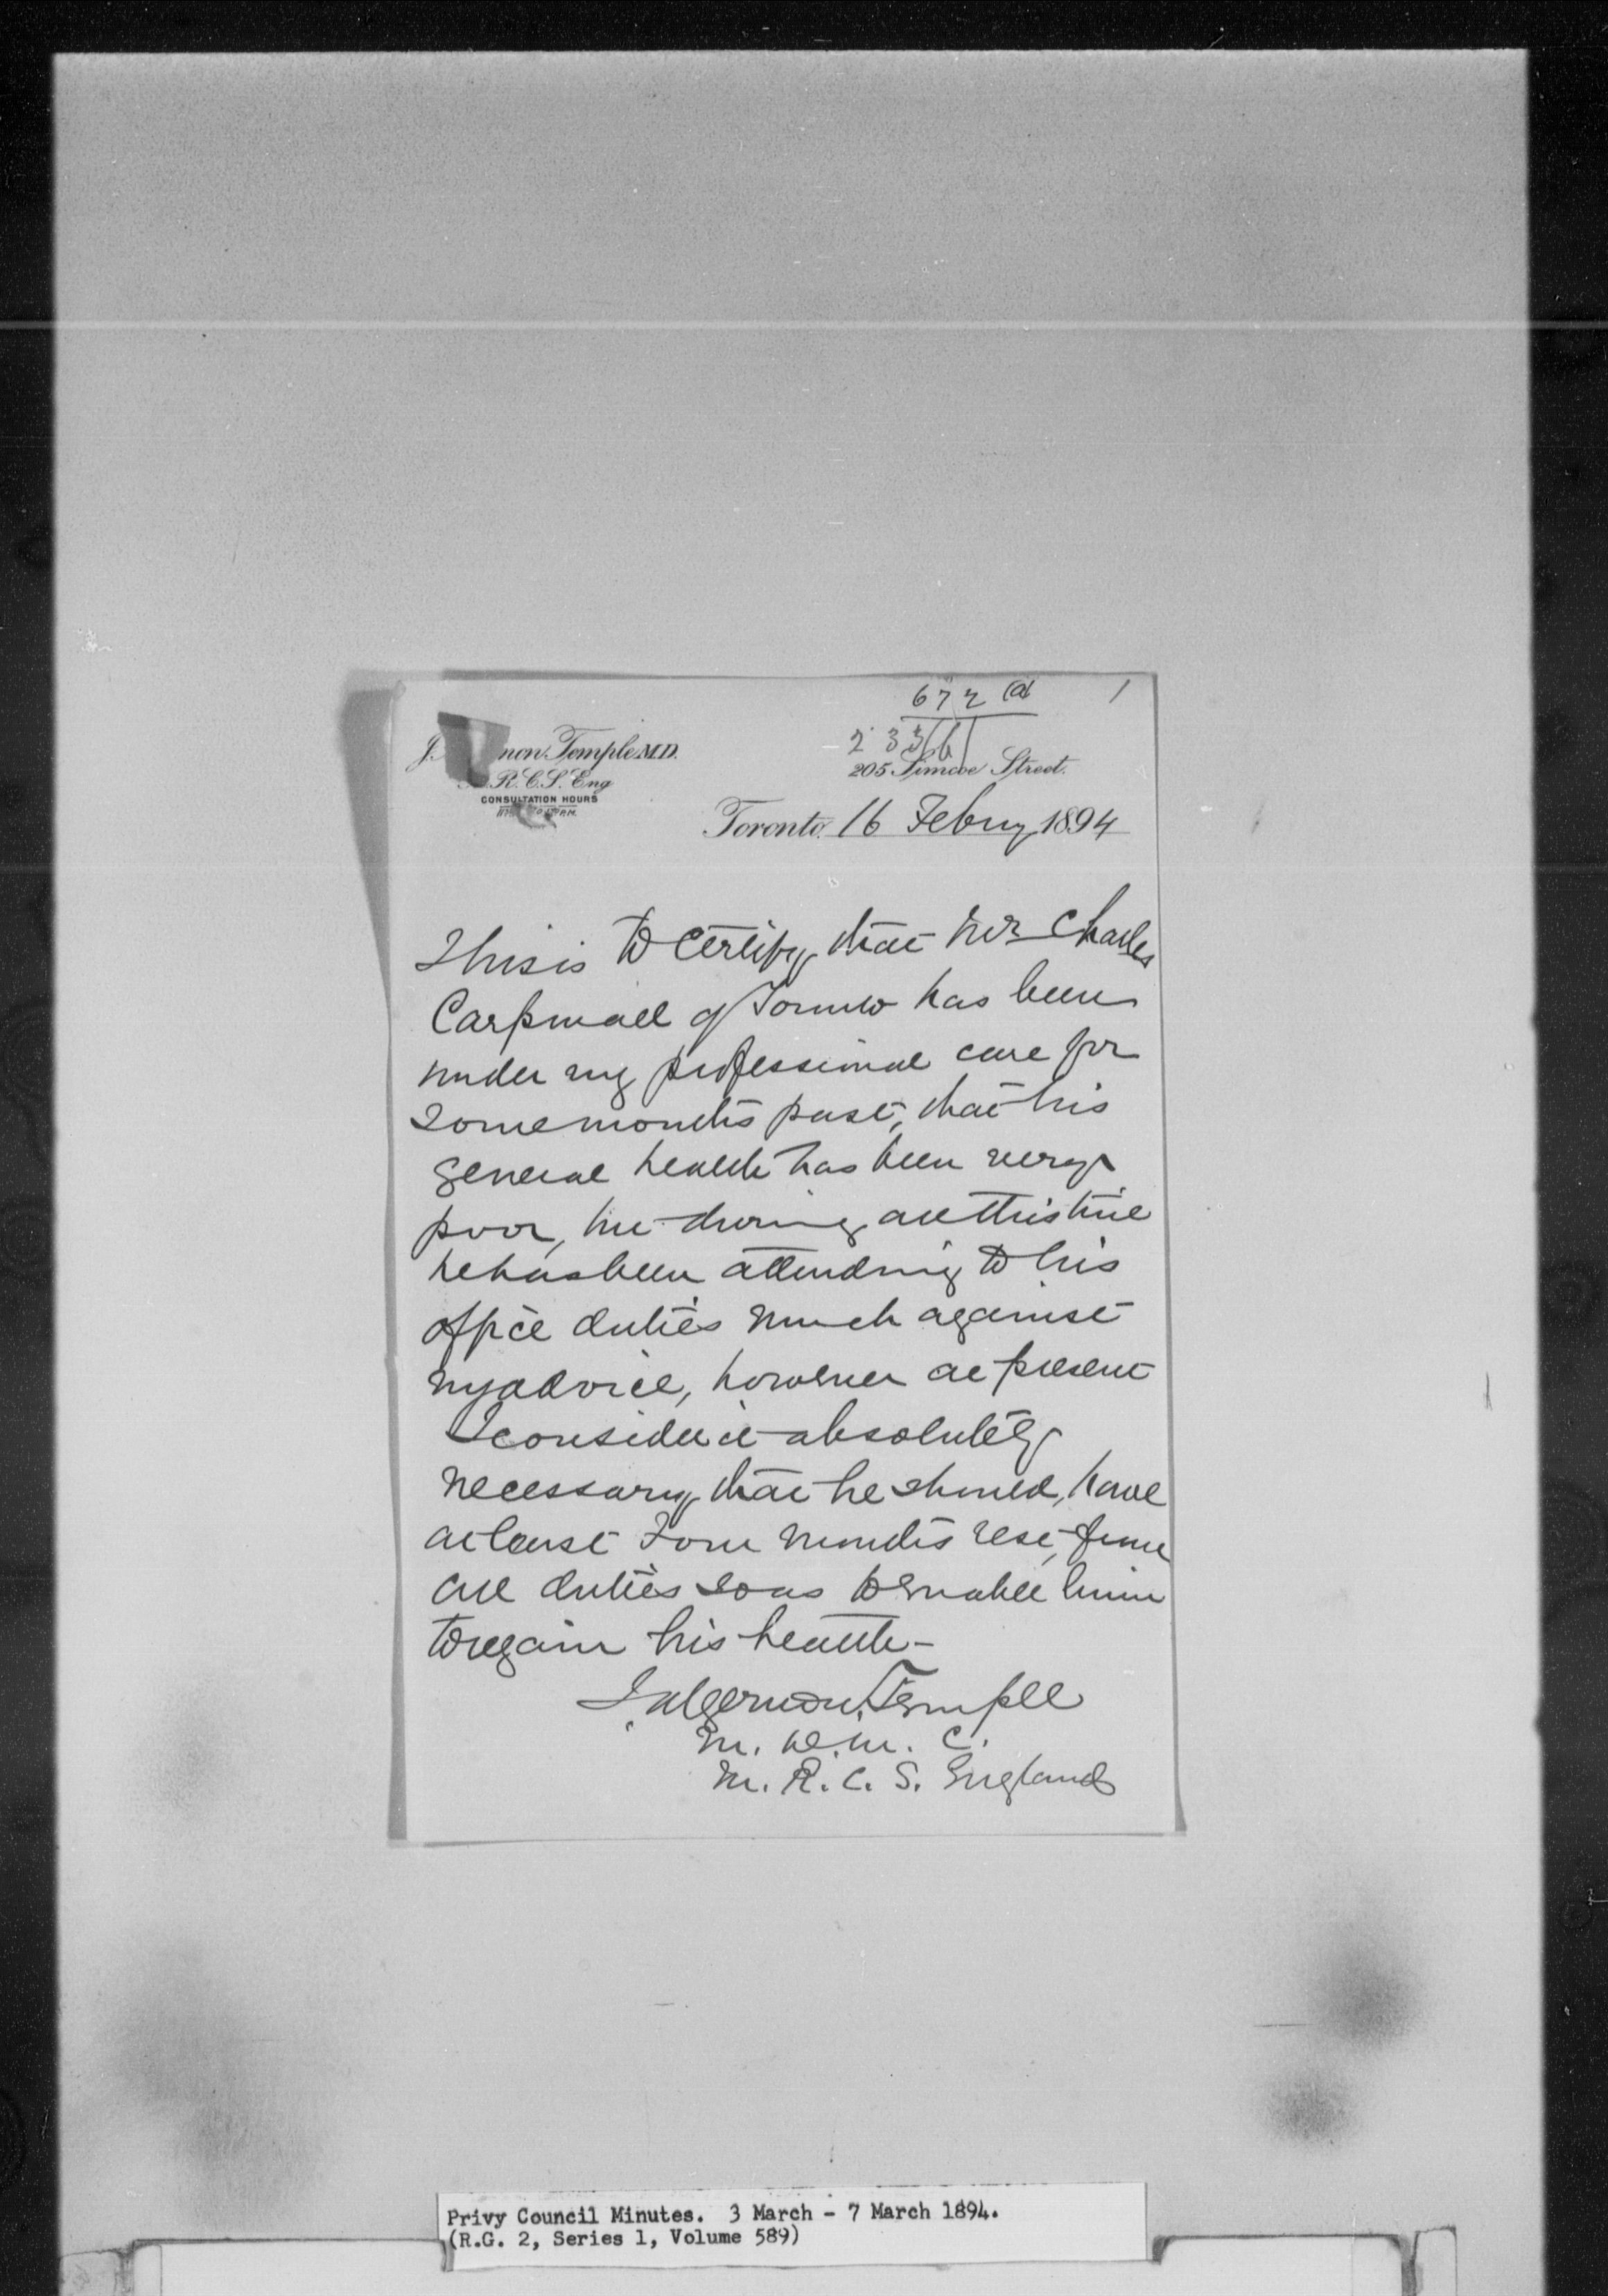 672 a 1
2336
J. non Temple M.D.
R.C.S. Eng
CONSULTATION HOURS
205 Simcoe Street.
Toronto 16 Febry 1894
This is to certify that Mr Charles
Carpmael of Toronto has been
under my professional care for
some months past, that his
general health has been very
poor, but during all this time
he has been attending to his
office duties much against
my advice, however at present
I consider it absolutely
necessary that he should, have
at least Four months rest, from
all duties so as to enable him
to regain his health —
J. Algernon Temple
M. D. M. C.
M. R. C. S. England
Privy Council Minutes. 3 March - 7 March 1894.
(R.G. 2, Series 1, Volume 589)